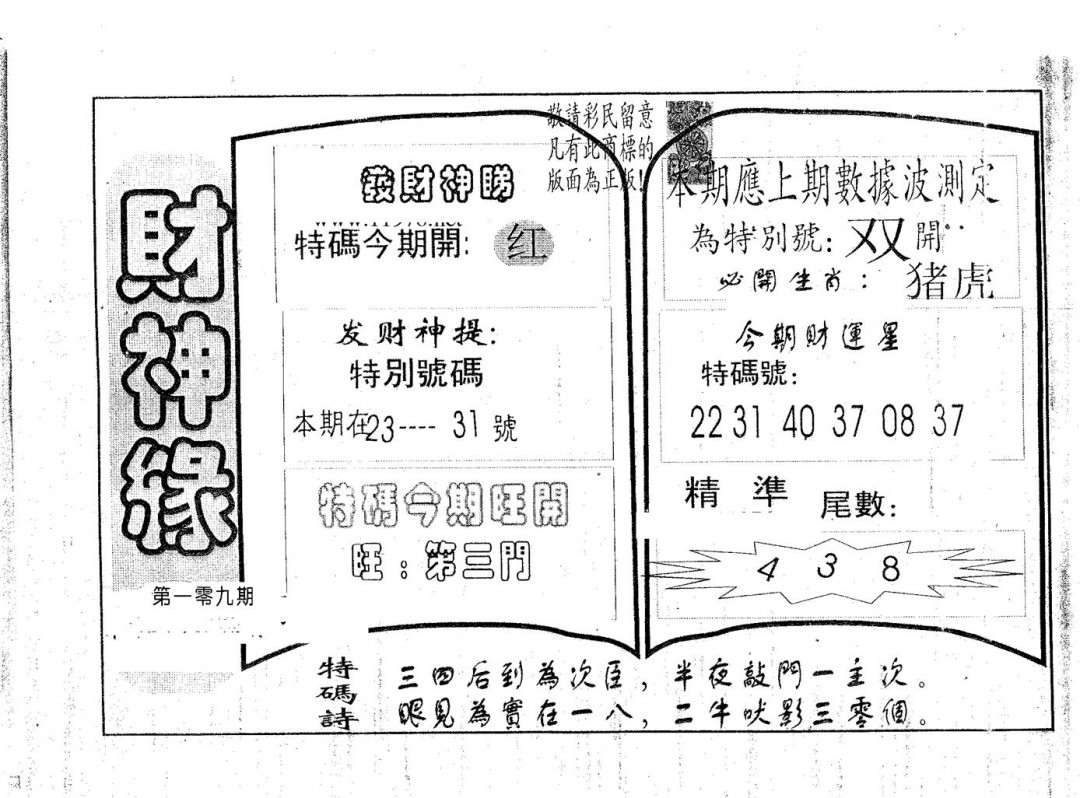 財神緣
第一零九期
敬請彩民留意
凡有此商標的
版面為正版!
發財神睇
特碼今期開: 红
发财神提:
特別號碼
本期在23---- 31 號
特碼今期旺開
旺:第三門
本期應上期數據波測定
為特別號: 双 開
必開生肖: 猪虎
今期財運星
特碼號:
22 31 40 37 08 37
精 準 尾數:
4 3 8
特碼詩
三四后到為次臣,半夜敲門一主次。
眼見為實在一八,二牛吠影三零個。